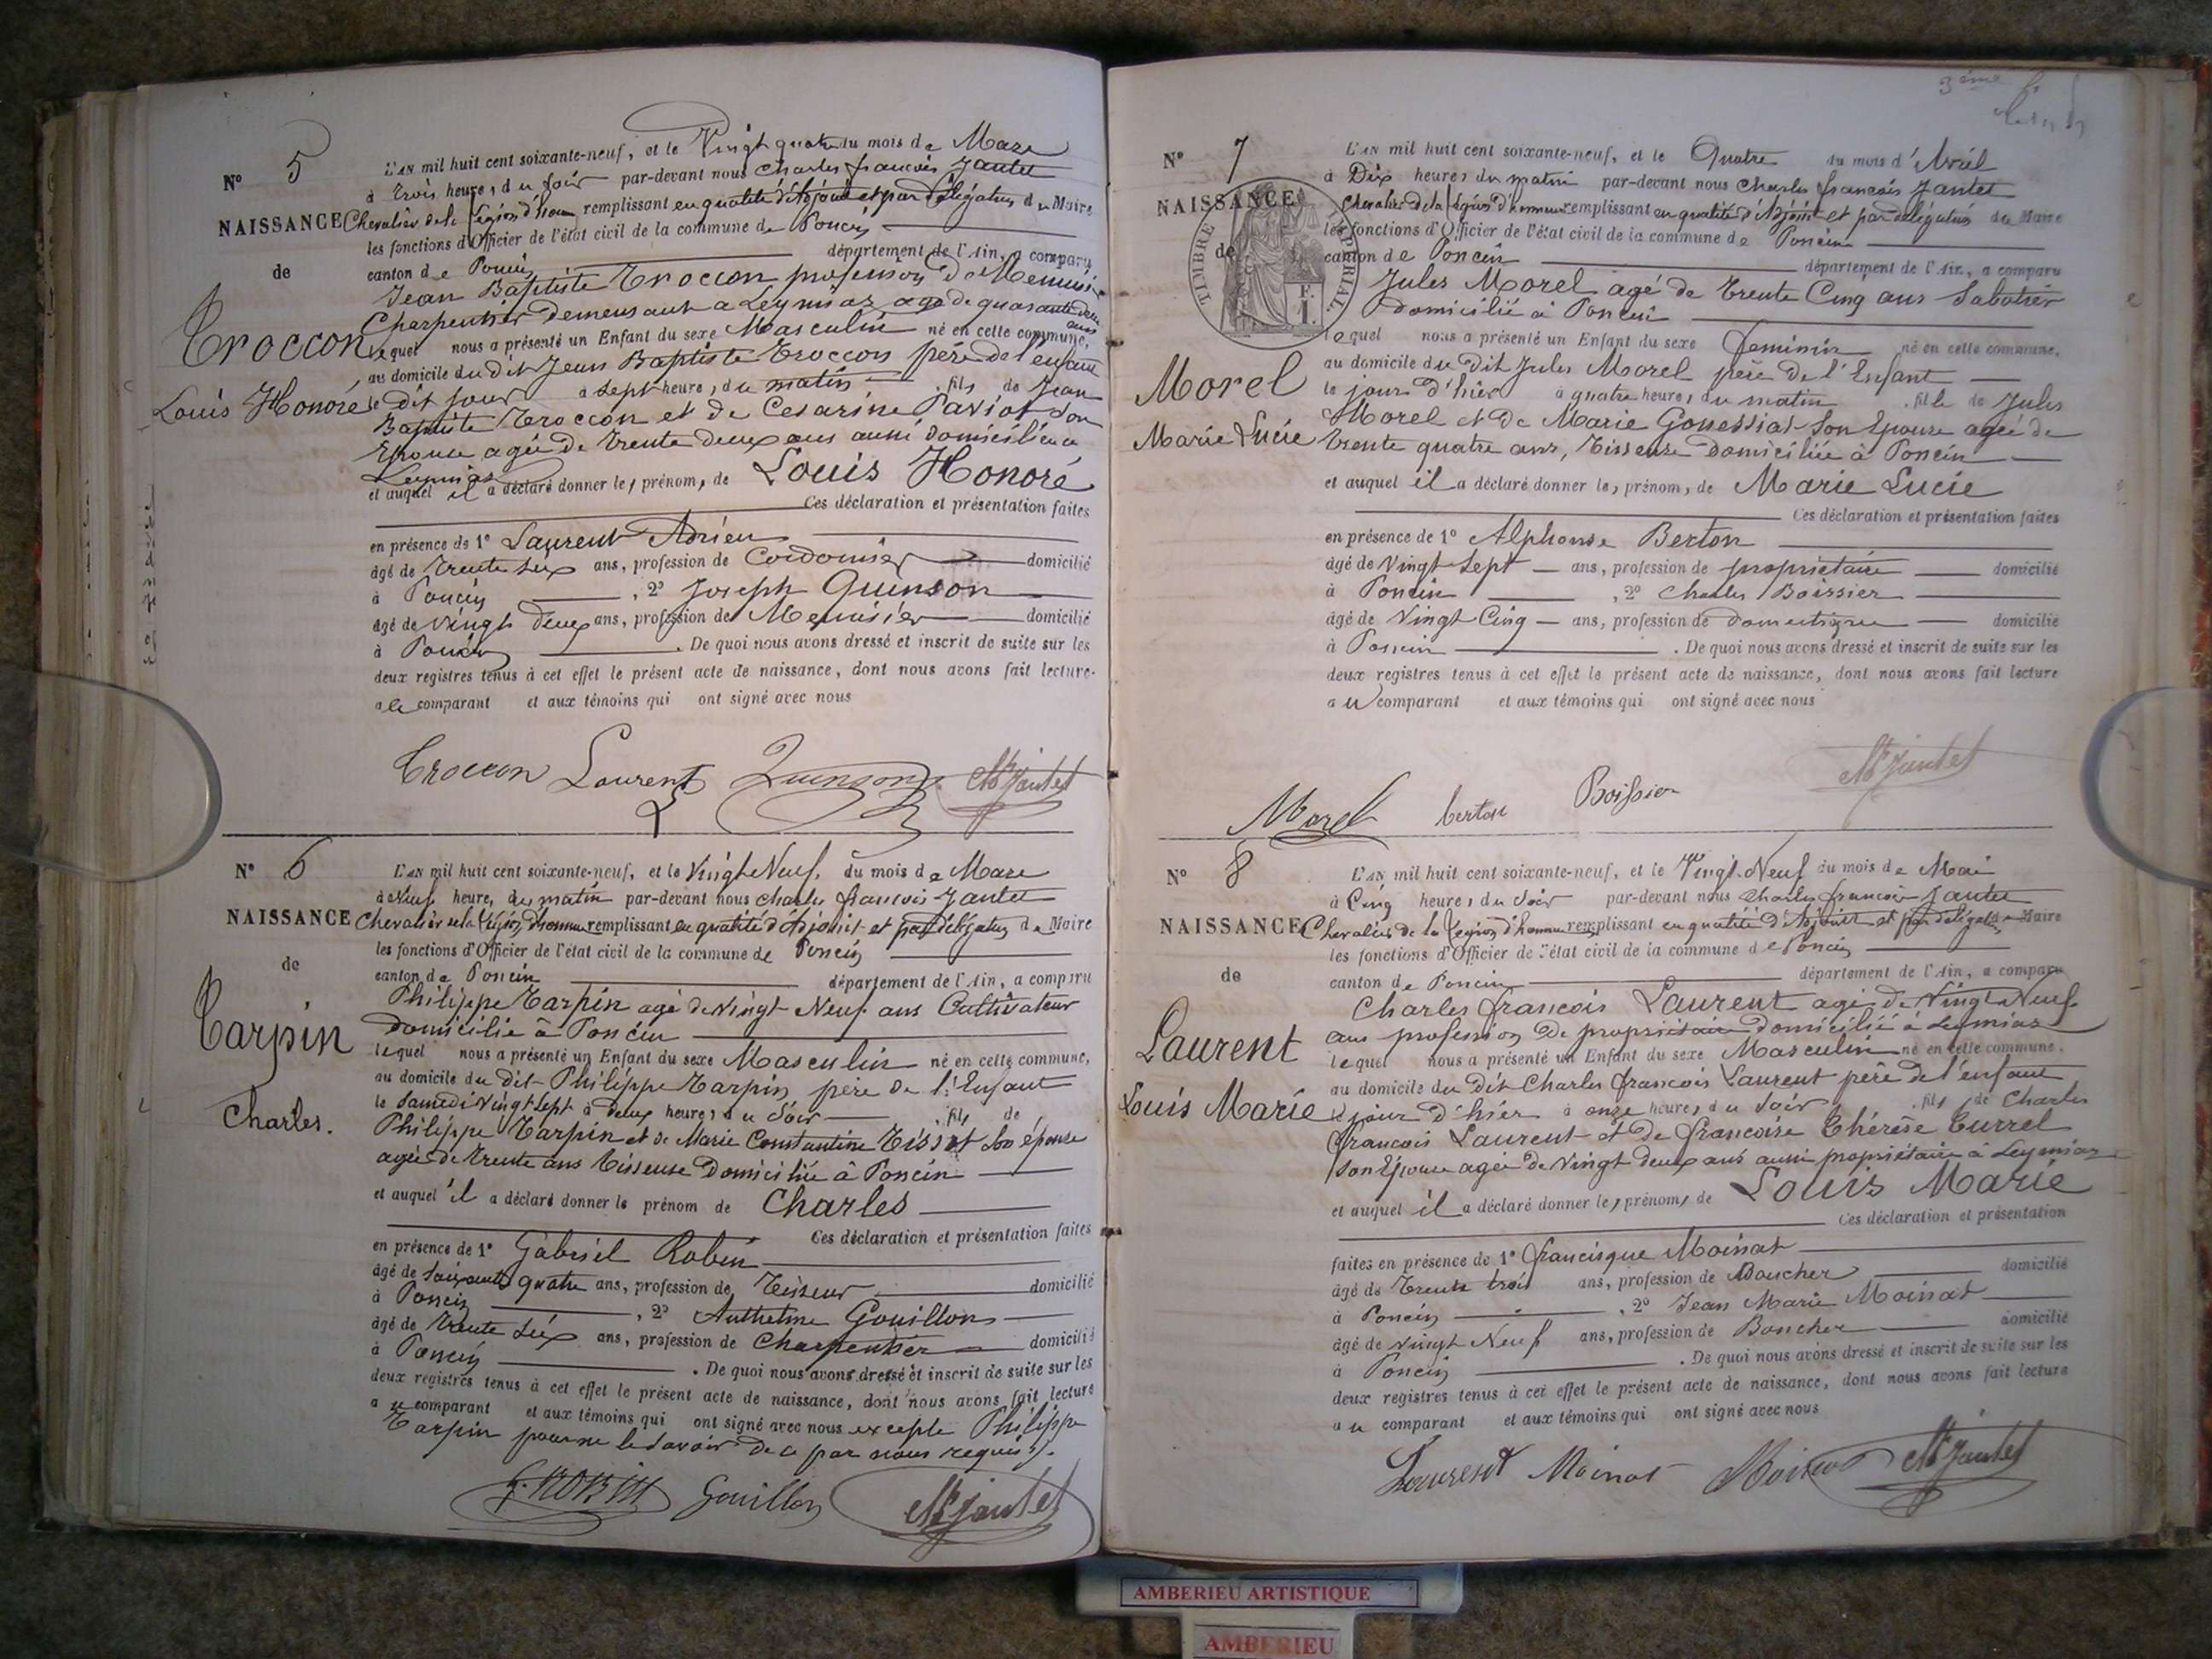 N° 5
L'AN mil huit cent soixante-neuf, et le Vingt quatre du mois de Mars
à trois heures du soir par-devant nous Charles françois Jantet
NAISSANCE Chevalier de la Légion d'honneur remplissant en qualité d'Adjoint et par délégation du Maire
les fonctions d'Officier de l'état civil de la commune de Poncin
de
canton de Poncin département de l'Ain, a comparu
Jean Baptiste Troccon profession de Menuisier
Charpentier demeurant a Leymiaz agé de quarante deux ans
Troccon
lequel nous a présenté un Enfant du sexe Masculin né en cette commune,
au domicile du dit Jean Baptiste Troccon père de l'enfant
Louis Honoré
le dit jour à sept heures du matin fils de Jean
Baptiste Troccon et de Cesarine Paviot son
Epouse agée de trente deux ans aussi domiciliée a
Leymiaz
et auquel il a déclaré donner les prénoms de Louis Honoré
Ces déclaration et présentation faites
en présence de 1° Laurent Adrien
âgé de trente six ans, profession de Cordonnier domicilié
à Poncin , 2° Joseph Quinson
âgé de vingt deux ans, profession de Menuisier domicilié
à Poncin . De quoi nous avons dressé et inscrit de suite sur les
deux registres tenus à cet effet le présent acte de naissance, dont nous avons fait lecture
a le comparant et aux témoins qui ont signé avec nous
Troccon Laurent Quinson Ch Jantet
N° 6
L'AN mil huit cent soixante-neuf, et le Vingt Neuf du mois de Mars
à Neuf heures du matin par-devant nous Charles françois Jantet
NAISSANCE Chevalier de la Légion d'honneur remplissant en qualité d'Adjoint et par délégation du Maire
les fonctions d'Officier de l'état civil de la commune de Poncin
de
canton de Poncin département de l'Ain, a comparu
Philippe Tarpin agé de Vingt-Neuf ans Cultivateur
domicilié à Poncin
Tarpin
lequel nous a présenté un Enfant du sexe Masculin né en cette commune,
au domicile du dit Philippe Tarpin père de l'Enfant
Charles.
le Samedi Vingt sept à deux heures du soir fils de
Philippe Tarpin et de Marie Constantine Tissot son épouse
agée de trente ans tisseuse domiciliée à Poncin
et auquel il a déclaré donner le prénom de Charles
Ces déclaration et présentation faites
en présence de 1° Gabriel Robin
âgé de soixante quatre ans, profession de Tisseur domicilié
à Poncin , 2° Anthelme Gouillon
âgé de trente six ans, profession de Charpentier domicilié
à Poncin . De quoi nous avons dressé et inscrit de suite sur les
deux registres tenus à cet effet le présent acte de naissance, dont nous avons fait lecture
au comparant et aux témoins qui ont signé avec nous excepté Philippe
Tarpin pour ne le savoir de ce par nous requis.
G. ROBIN Gouillon Ch Jantet
3ème
N° 7
L'AN mil huit cent soixante-neuf, et le Quatre du mois d'Avril
à Dix heures du matin par-devant nous Charles françois Jantet
NAISSANCE Chevalier de la Légion d'honneur remplissant en qualité d'Adjoint et par délégation du Maire
les fonctions d'Officier de l'état civil de la commune de Poncin
de
canton de Poncin département de l'Ain, a comparu
TIMBRE IMPÉRIAL F. 1.
Jules Morel agé de trente Cinq ans Sabotier
domicilié à Poncin
lequel nous a présenté un Enfant du sexe feminin né en cette commune,
au domicile du dit Jules Morel père de l'Enfant
Morel
le jour d'hier à quatre heures du matin fille de Jules
Morel et de Marie Gonessiat son Epouse agée de
Marie Lucie
trente quatre ans, Tisseuse domiciliée à Poncin
et auquel il a déclaré donner les prénoms de Marie Lucie
Ces déclaration et présentation faites
en présence de 1° Alphonse Berton
âgé de Vingt sept ans, profession de propriétaire domicilié
à Poncin , 2° Charles Boissier
âgé de Vingt Cinq ans, profession de domestique domicilié
à Poncin . De quoi nous avons dressé et inscrit de suite sur les
deux registres tenus à cet effet le présent acte de naissance, dont nous avons fait lecture
au comparant et aux témoins qui ont signé avec nous
Morel berton Boissier Ch Jantet
N° 8
L'AN mil huit cent soixante-neuf, et le Vingt-Neuf du mois de Mai
à Cinq heures du soir par-devant nous Charles françois Jantet
NAISSANCE Chevalier de la Légion d'honneur remplissant en qualité d'Adjoint et par délégation Maire
les fonctions d'Officier de l'état civil de la commune de Poncin
de
canton de Poncin département de l'Ain, a comparu
Charles françois Laurent agé de Vingt Neuf
ans profession de propriétaire domicilié à Leymiaz
Laurent
lequel nous a présenté un Enfant du sexe Masculin né en cette commune,
au domicile du dit Charles françois Laurent père de l'enfant
Louis Marie
le jour d'hier à onze heures du soir fils de Charles
françois Laurent et de françoise Thérèse Turrel
son Epouse agée de Vingt deux ans aussi propriétaire à Leymiaz
et auquel il a déclaré donner les prénoms de Louis Marie
Ces déclaration et présentation
faites en présence de 1° francisque Moinat
âgé de Trente trois ans, profession de Boucher domicilié
à Poncin , 2° Jean Marie Moinat
âgé de vingt Neuf ans, profession de Boucher domicilié
à Poncin . De quoi nous avons dressé et inscrit de suite sur les
deux registres tenus à cet effet le présent acte de naissance, dont nous avons fait lecture
au comparant et aux témoins qui ont signé avec nous
Laurent Moinat Moinat Ch Jantet
AMBERIEU ARTISTIQUE
AMBERIEU